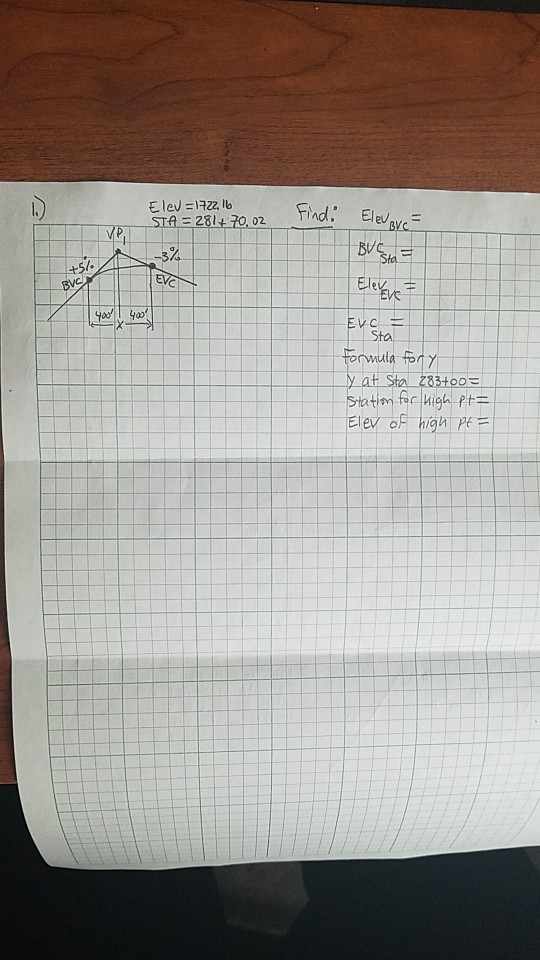 1.)
Elev = 1722.16
STA = 281 + 70.02
VPI
+5%
-3%
BVC
EVC
400' 400'
X
Find:
Elev BVC =
BVC Sta =
Elev EVC =
EVC Sta =
Formula for y
y at Sta 283+00 =
Station for high pt =
Elev of high pt =